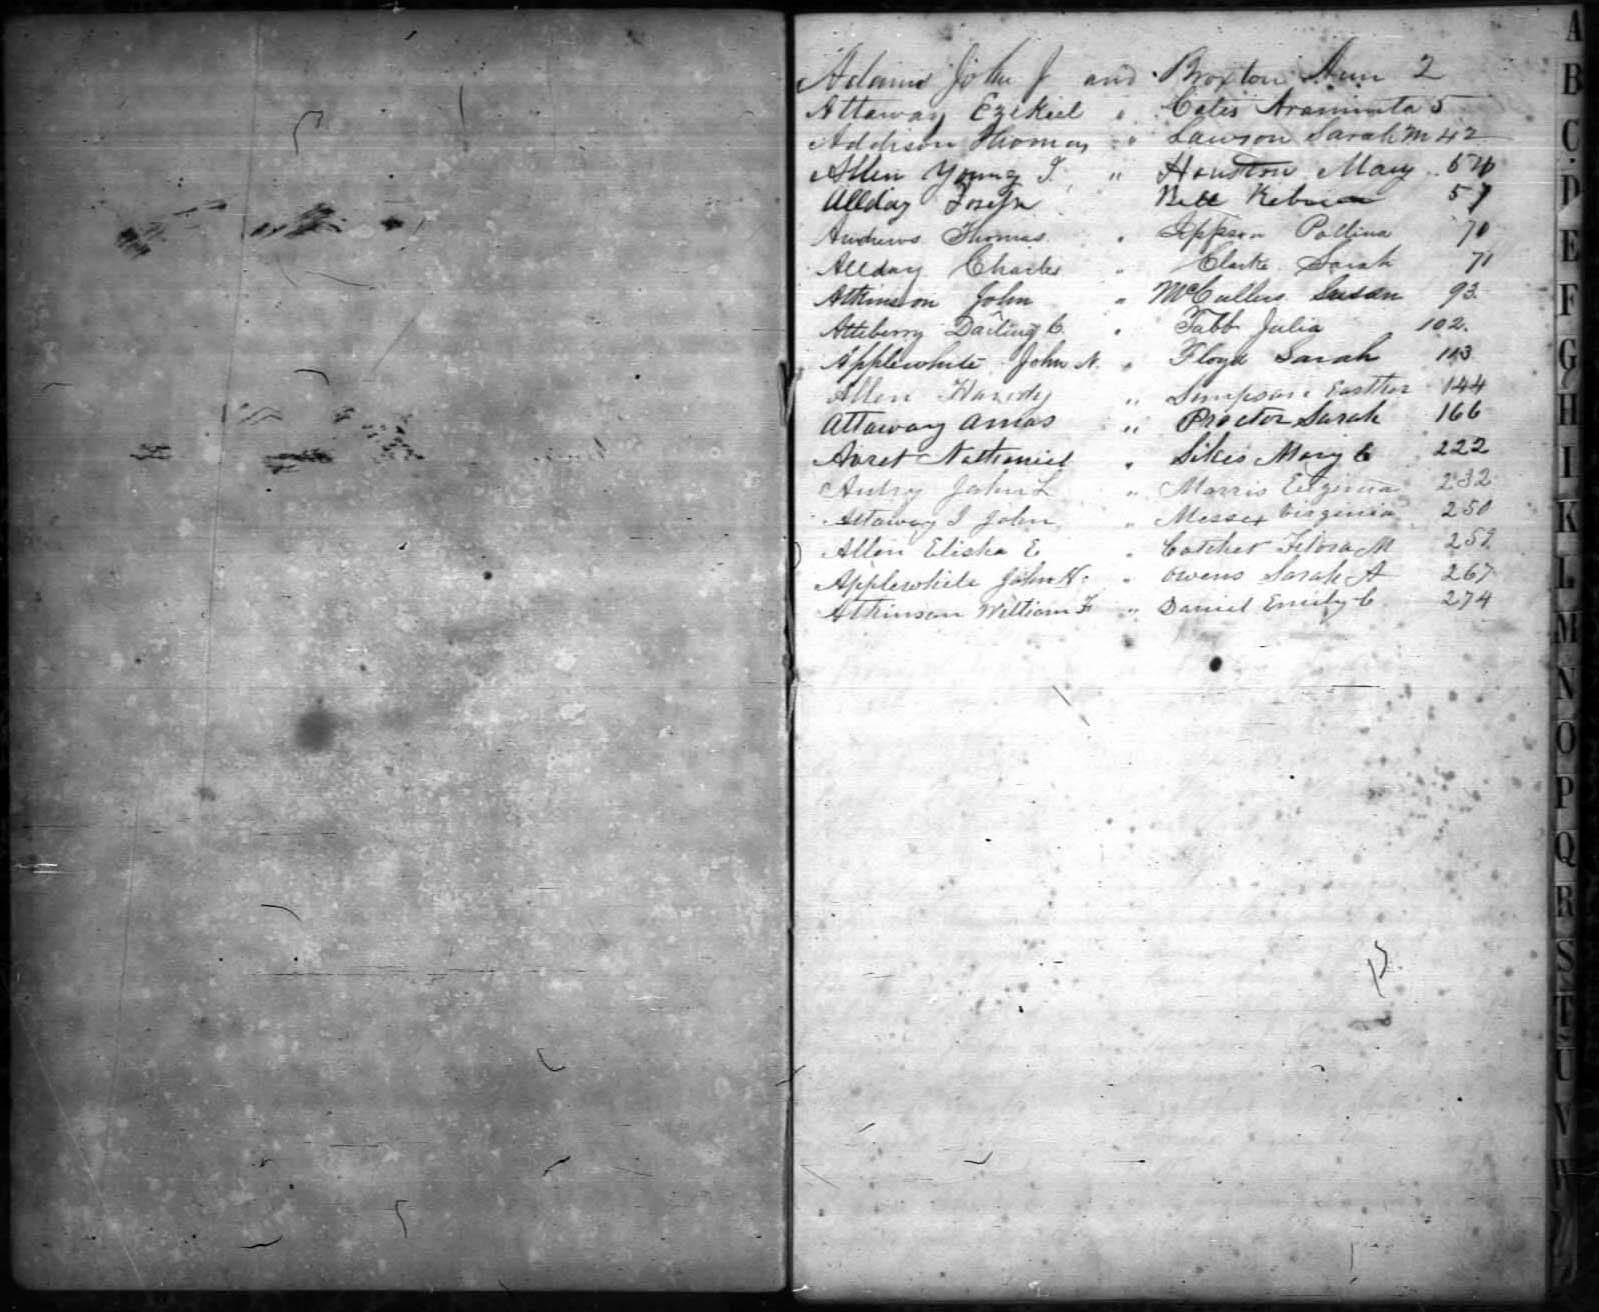 Adams John J and Broxton Ann 2
Attaway Ezekiel " Cates Araminta 5
Addison Thomas " Lawson Sarah M 42
Allen Young J. " Houston Mary
Allday Joseph Bell 57
Andrews Thomas " Pollina 70
Allday Charles " Clarke Sarah 71
Atkinson John " McCullers Susan 93
Atteberry Darling C. " Tabb Julia 102.
Applewhite John N. " Floyd Sarah 113
Allen Hardy " Simpson Easther 144
Attaway Amos " Proctor Sarah 166
Avret Nathaniel " Sikes Mary C 222
Autry John L " Morris 232
Attaway J John " Messex Virginia 250
Allen Elisha E " Flora M 259
Applewhite John N. " Owens Sarah A 267
Atkinson William F " Daniel Emily C 274
A
B
C
D
E
F
G
H
I
K
L
M
N
O
P
Q
R
S
T
U
V
W